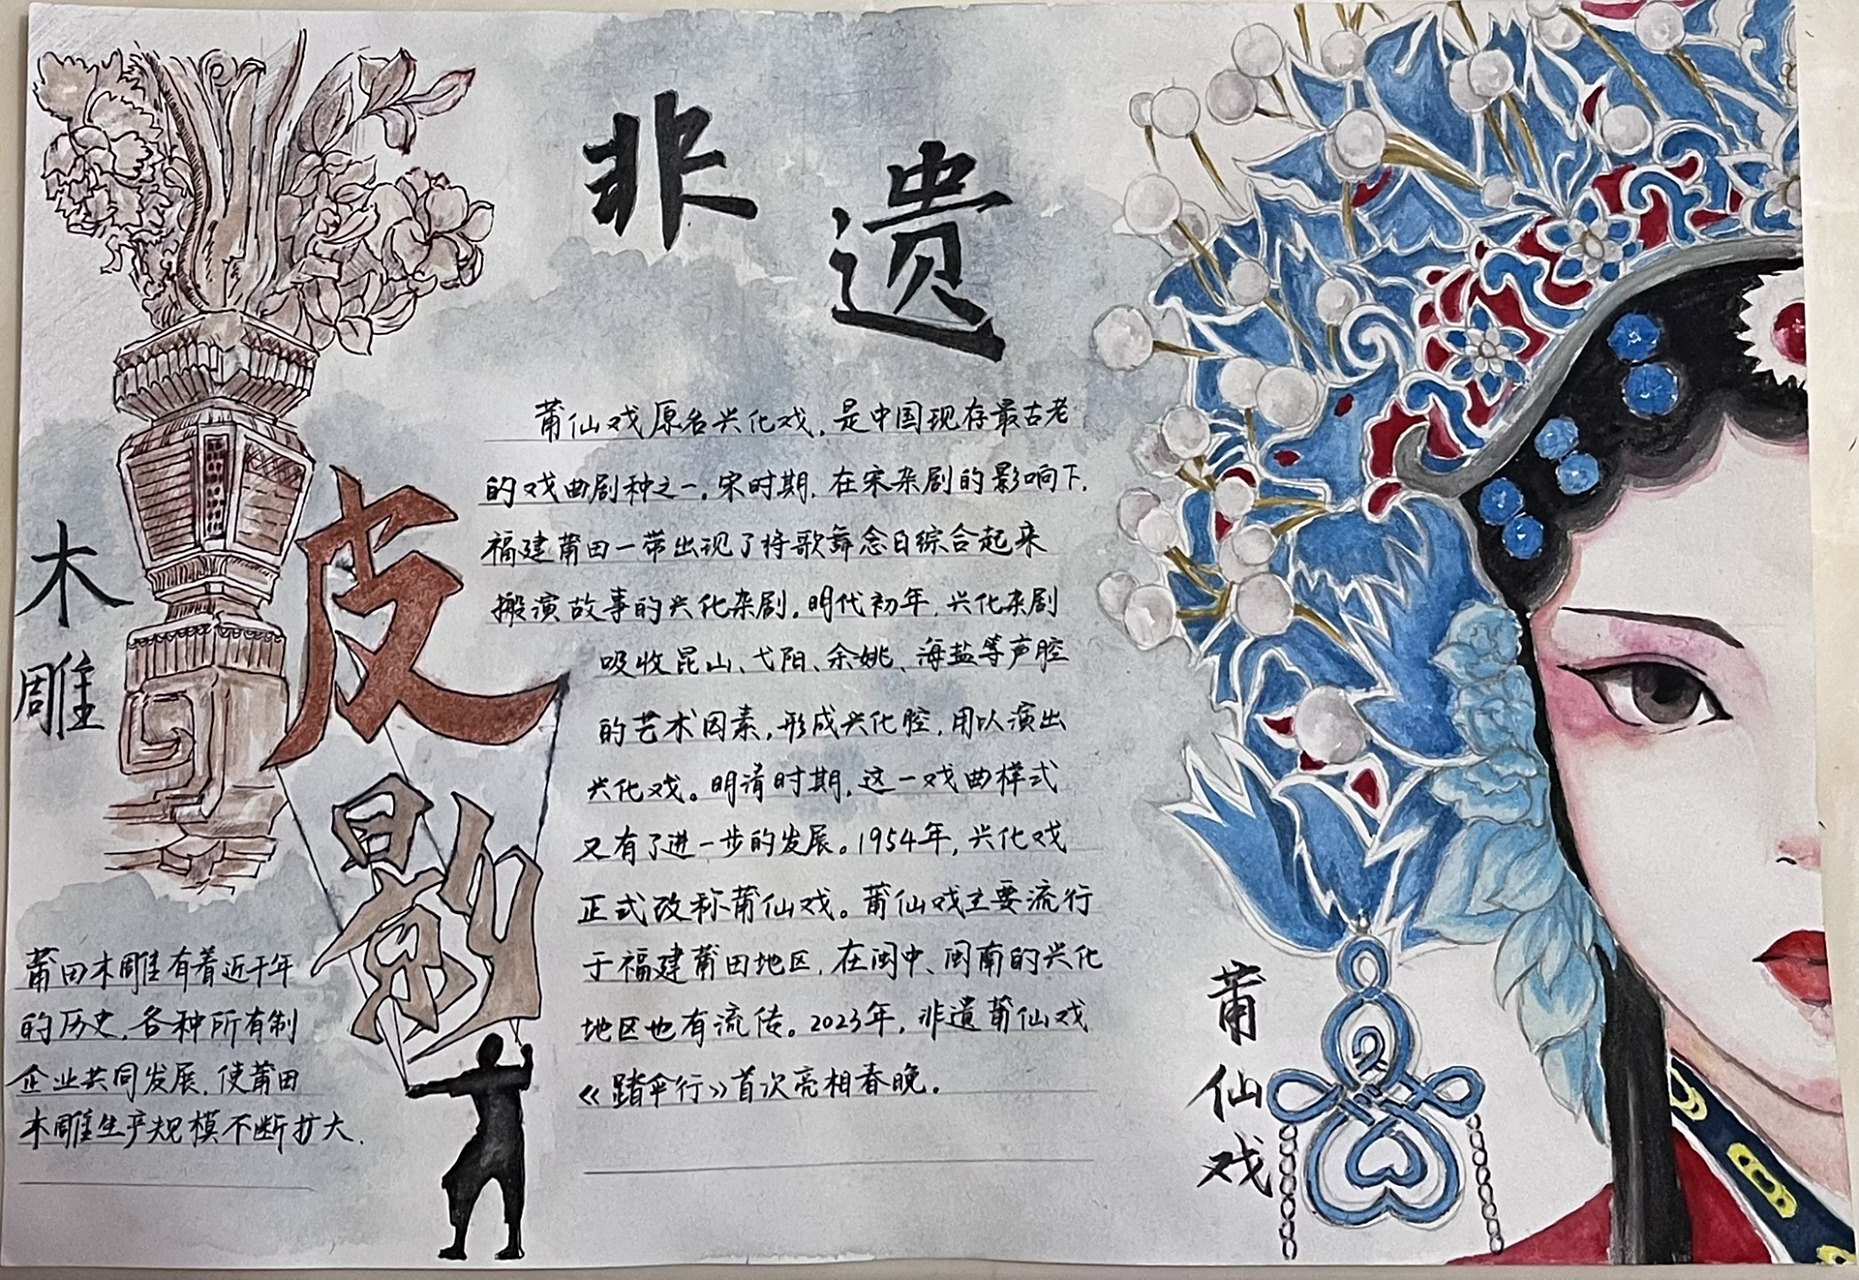 非遗
莆仙戏原名兴化戏，是中国现存最古老
的戏曲剧种之一。宋时期，在宋杂剧的影响下，
福建莆田一带出现了将歌舞念白综合起来
搬演故事的兴化杂剧。明代初年，兴化杂剧
吸收昆山、弋阳、余姚、海盐等声腔
的艺术因素，形成兴化腔，用以演出
兴化戏。明清时期，这一戏曲样式
又有了进一步的发展。1954年，兴化戏
正式改称莆仙戏。莆仙戏主要流行
于福建莆田地区，在闽中、闽南的兴化
地区也有流传。2023年，非遗莆仙戏
《踏伞行》首次亮相春晚。
木雕
皮影
莆田木雕有着近千年
的历史，各种所有制
企业共同发展，使莆田
木雕生产规模不断扩大.
莆仙戏